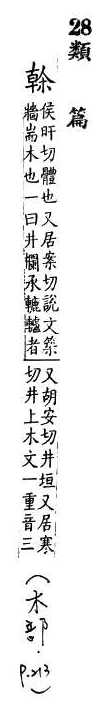 28
類篇
榦
侯旰切體也又居案切說文築
牆耑木也一曰井欄承轆轤者
又胡安切井垣又居寒
切井上木文一重音三
(木部.
p.213)